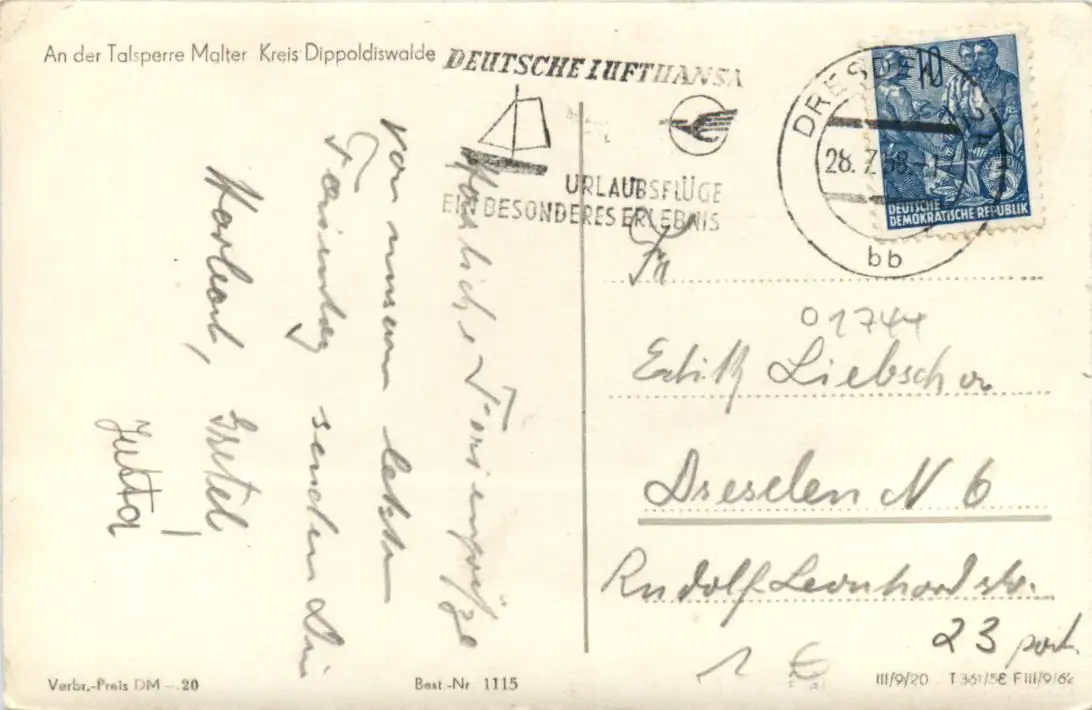 An der Talsperre Malter Kreis Dippoldiswalde
DEUTSCHE LUFTHANSA
URLAUBSFLÜGE
EIN BESONDERES ERLEBNIS
DRESDEN
28. 7. 58
bb
10
DEUTSCHE
DEMOKRATISCHE REPUBLIK
Herzliche Feriengrüße
von unserem letzten
Ferientag senden Dir
Gretel
Jutta
Fr
01744
Edith Liebscher
Dresden N 6
Rudolf-Leonhard str.
23 part.
1
Verbr.-Preis DM -.20
Best.-Nr 1115
III/9/20 T 361/58 F III/9/62